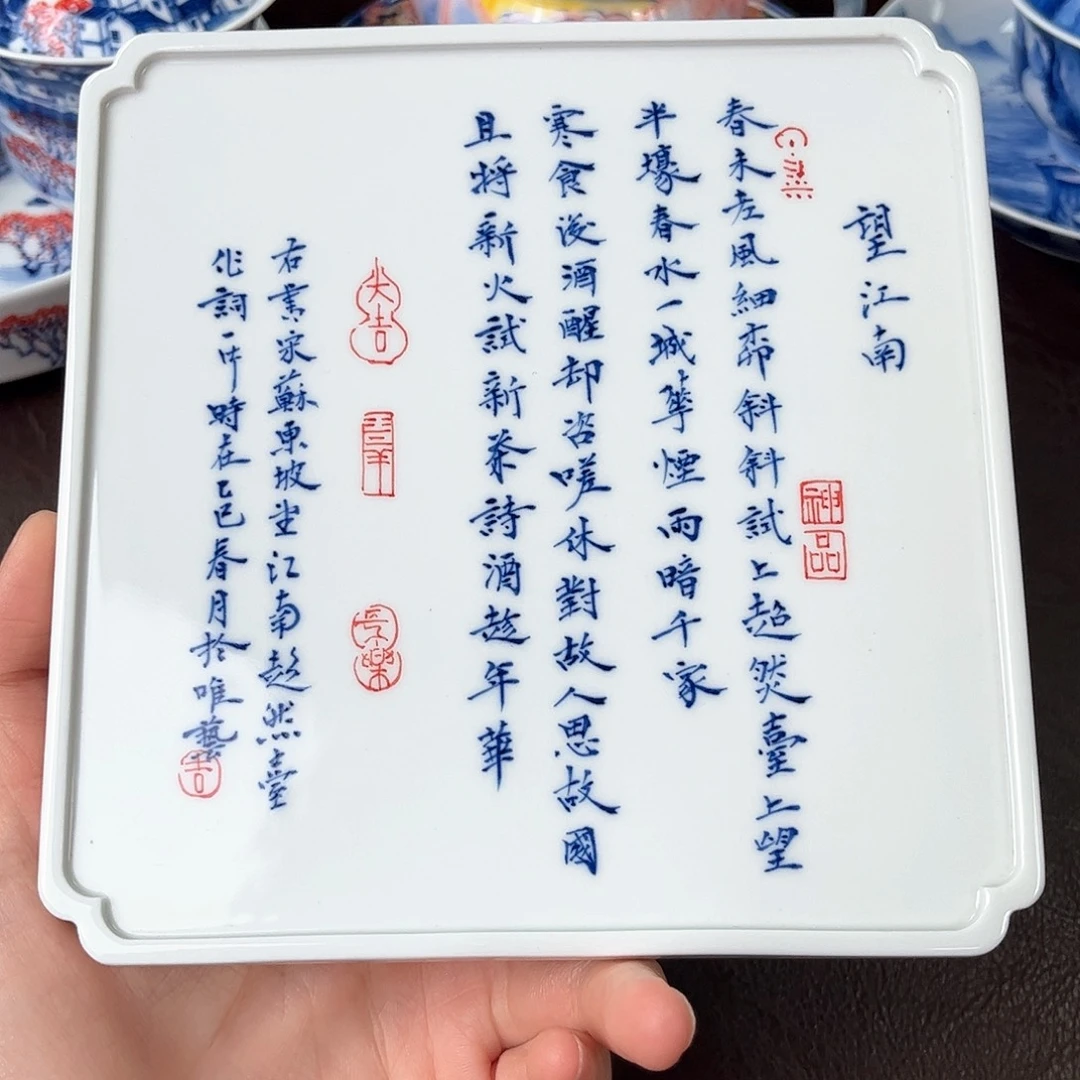 望江南
春未老風細柳斜斜試上超然臺上望
神品
半壕春水一城華煙雨暗千家
寒食後酒醒却咨嗟休對故人思故國
且將新火試新茶詩酒趁年華
大吉
吉羊
長樂
右書宋蘇東坡望江南超然臺
作詞一時在乙巳春月於唯藝
吉